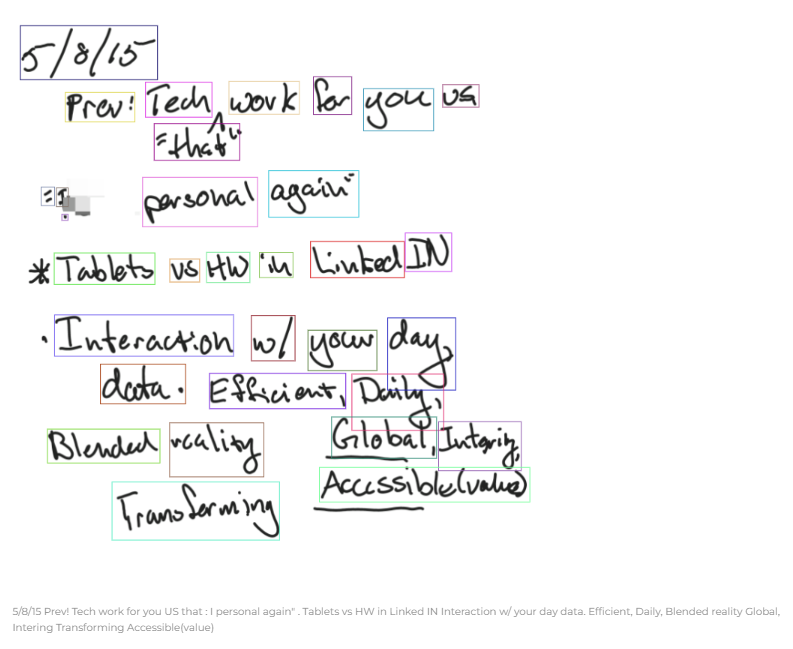 5/8/15
Prev! Tech work for you vs
"that"
personal again"
* Tablets vs HW in LinkedIN
· Interaction w/ your day,
data. Efficient, Daily,
Blended reality Global,
Transforming Accessible(value)
5/8/15 Prev! Tech work for you US that : I personal again" . Tablets vs HW in Linked IN Interaction w/ your day data. Efficient, Daily, Blended reality Global,
Intering Transforming Accessible(value)